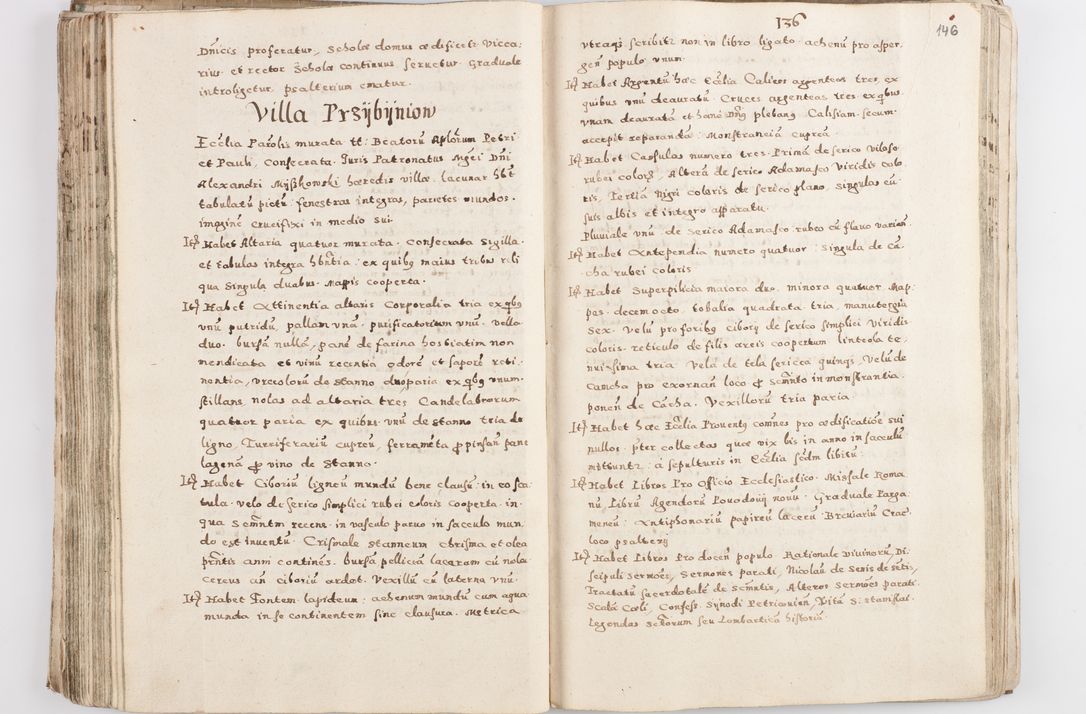 Dnicis proferatur, Scholæ domus ædificetr Vicca:
rius et rector Scholæ continuus seruetur Graduale
introligetur psalterium ematur.
Villa Przÿbÿniow
Ecclia Parolis murata tt: Beatorū Aplorum Petri
et Pauli, Consecrata. Juris Patronatus Mgci Dni
Alexandri Mÿszkowski hæredis villæ, lacunar hbt
tabulatū pictū fenestras integras, parietes mundos.
imaginē crucifixi in medio sui.
Itē Habet Altaria quatuor murata. Consecrata Sigilla.
et tabulas integra hbntia. ex quibq maius tribus reli
qua singula duabus. Mappis cooperta.
Itē Habet Attinentia altaris Corporalia tria ex qbq
vnū putridū, pallam vnā. purificatorium vnū. vella
duo. bursā nullā, panē de farina hostiatim non
mendicata et vinū recentia odorē et saporē reti.
nentia, vrceolorū de stanno duo paria ex qbq vnum.
stillans, nolas ad altaria tres Candelabrorum
quatuor paria ex quibus vnū de stanno tria de
ligno. Turriferariū cupreū, ferramēta p pinsan pane
lagenā p vino de stanno.
Itē Habet Ciboriū ligneū mundū bene clausū in eo sca
tula. velo de serico simplici rubei coloris cooperta. in
qua Scmntm recens. in vasculo paruo in sacculo mun
do est inuentū. Crismale stanneum chrisma et olea
prntis anni continēs. bursā pelliciā lacaram cū nola
cereus an ciboriū ardet. Vexillū cū laterna vnū.
Itē Habet Fontem lapideum. aehenum mundū cum aqua
munda in se continentem sine clausura. Metrica
136
146
vtraqs scribitr non in libro ligato aehenū pro asper,
gen populo vnum.
Itē Habet Argentū hæc Ecclia Calices argenteos tres, ex
quibus vnū deauratū. Cruces argenteas tres. ex qbus
vnam deauratā et hanc Dnq plebanq Calisiam secum.
accepit reparandā. Monstrancia cuprea.
Itē Habet Casulas numero tres. Primā de serico viloso
rubei coloris, Alterā de serico Adamasco Viridis colo
ris, Tertiā Nigri coloris de serico plano, singulas cū
suis albis et integro apparatu.
Pluuiale vnū. de Serico Adamasco rubeo cū flauo variam.
Itē Habet Antependia numero quatuor. Singula de cā,
cha rubei coloris
Itē Habet Superpilicia maiora duo. minora quatuor Map,
pas. decem octo, tobalia quadrata tria, manutergia
Sex. Velū pro foribq ciborij de serico simplici viridis
coloris. reticulo de filis æreis coopertum linteola te,
nuissima tria Vela de tela sericea quinqs, Velū de
Camcha pro exornan loco p Scmnto in monstrantia
ponen de Cācha. Vexillorū tria paria.
Itē Habet hæc Ecclia Prouentq comnes pro ædificatiōe sui
nullos. pter collectas quæ vix bis in anno in sacculū
mittuntr. à sepulturis in Ecclia sedm libitū.
Itē Habet Libros Pro Officio Ecclesiastico. Missale Roma
nū, Librū Agendorū Powodowij nouū. Graduale Parga
meneū. Antiphonariū papireū lacerū. Breuiariū Crac.
loco psalterij
Itē Habet Libros Pro docen populo Rationale viuinorū, Di.
scipuli Sermoēs, Sermones parati, Nicolaū de Senis de sctis,
Tractatū Sacerdotale de Scmntis, Alteros Sermoēs parati.
Scala Coeli, Confess. Synodi Petriconien, Vitā S: Stanislai.
Legendas Sctorum seu Lombartica historia.